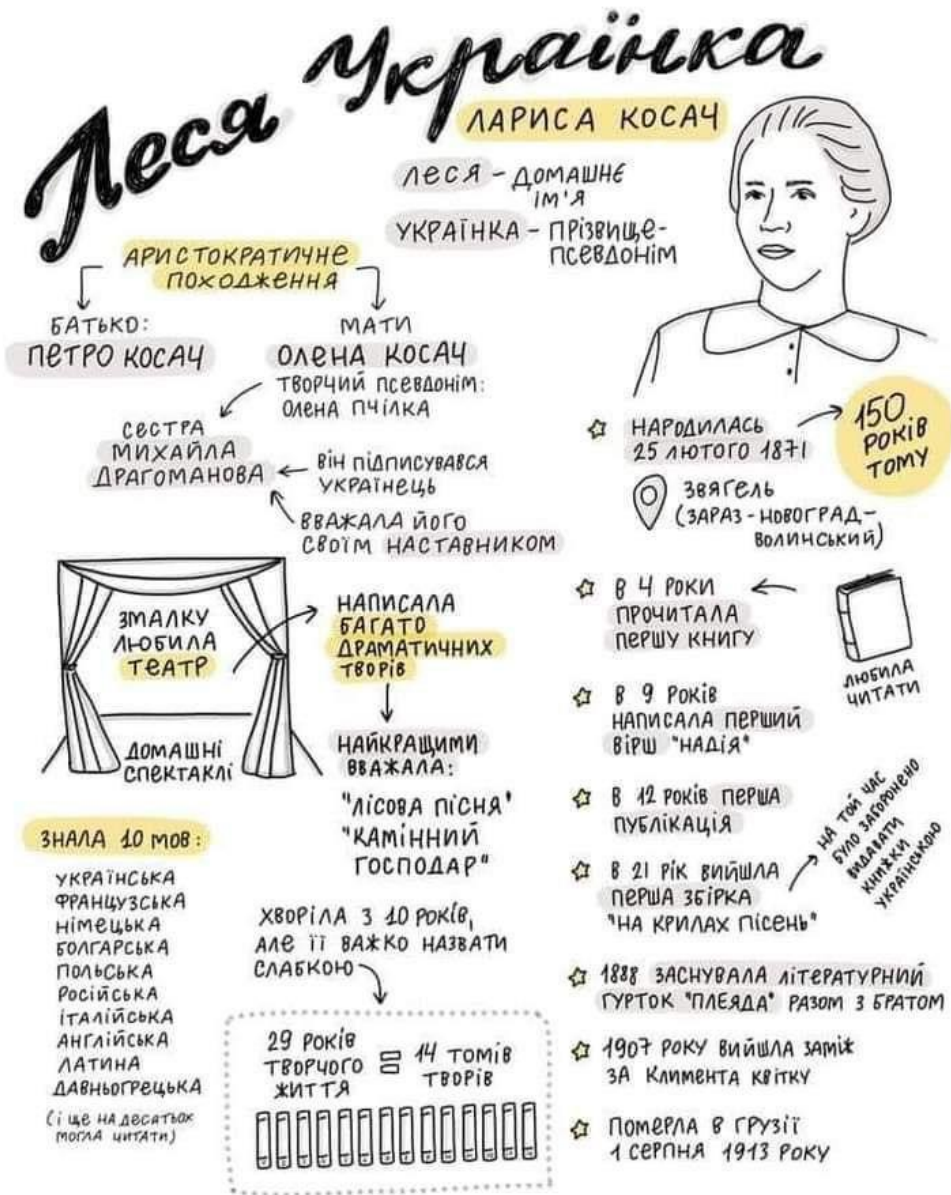 Леся Українка
ЛАРИСА КОСАЧ
ЛЕСЯ - ДОМАШНЄ
ІМ'Я
УКРАЇНКА - ПРІЗВИЩЕ-
ПСЕВДОНІМ
АРИСТОКРАТИЧНЕ
ПОХОДЖЕННЯ
БАТЬКО:
ПЕТРО КОСАЧ
МАТИ
ОЛЕНА КОСАЧ
ТВОРЧИЙ ПСЕВДОНІМ:
ОЛЕНА ПЧІЛКА
СЕСТРА
МИХАЙЛА
ДРАГОМАНОВА
ВІН ПІДПИСУВАВСЯ
УКРАЇНЕЦЬ
ВВАЖАЛА ЙОГО
СВОЇМ НАСТАВНИКОМ
ЗМАЛКУ
ЛЮБИЛА
ТЕАТР
ДОМАШНІ
СПЕКТАКЛІ
НАПИСАЛА
БАГАТО
ДРАМАТИЧНИХ
ТВОРІВ
НАЙКРАЩИМИ
ВВАЖАЛА:
"ЛІСОВА ПІСНЯ"
"КАМІННИЙ
ГОСПОДАР"
ЗНАЛА 10 МОВ:
УКРАЇНСЬКА
ФРАНЦУЗСЬКА
НІМЕЦЬКА
БОЛГАРСЬКА
ПОЛЬСЬКА
РОСІЙСЬКА
ІТАЛІЙСЬКА
АНГЛІЙСЬКА
ЛАТИНА
ДАВНЬОГРЕЦЬКА
(І ЩЕ НА ДЕСЯТЬОХ
МОГЛА ЧИТАТИ)
ХВОРІЛА З 10 РОКІВ,
АЛЕ ЇЇ ВАЖКО НАЗВАТИ
СЛАБКОЮ
29 РОКІВ
ТВОРЧОГО
ЖИТТЯ
=
14 ТОМІВ
ТВОРІВ
НАРОДИЛАСЬ
25 ЛЮТОГО 1871
150
РОКІВ
ТОМУ
ЗВЯГЕЛЬ
(ЗАРАЗ - НОВОГРАД-
ВОЛИНСЬКИЙ)
В 4 РОКИ
ПРОЧИТАЛА
ПЕРШУ КНИГУ
ЛЮБИЛА
ЧИТАТИ
В 9 РОКІВ
НАПИСАЛА ПЕРШИЙ
ВІРШ "НАДІЯ"
В 12 РОКІВ ПЕРША
ПУБЛІКАЦІЯ
В 21 РІК ВИЙШЛА
ПЕРША ЗБІРКА
"НА КРИЛАХ ПІСЕНЬ"
НА ТОЙ ЧАС
БУЛО ЗАБОРОНЕНО
ВИДАВАТИ
КНИЖКИ
УКРАЇНСЬКОЮ
1888 ЗАСНУВАЛА ЛІТЕРАТУРНИЙ
ГУРТОК "ПЛЕЯДА" РАЗОМ З БРАТОМ
1907 РОКУ ВИЙШЛА ЗАМІЖ
ЗА КЛИМЕНТА КВІТКУ
ПОМЕРЛА В ГРУЗІЇ
1 СЕРПНЯ 1913 РОКУ